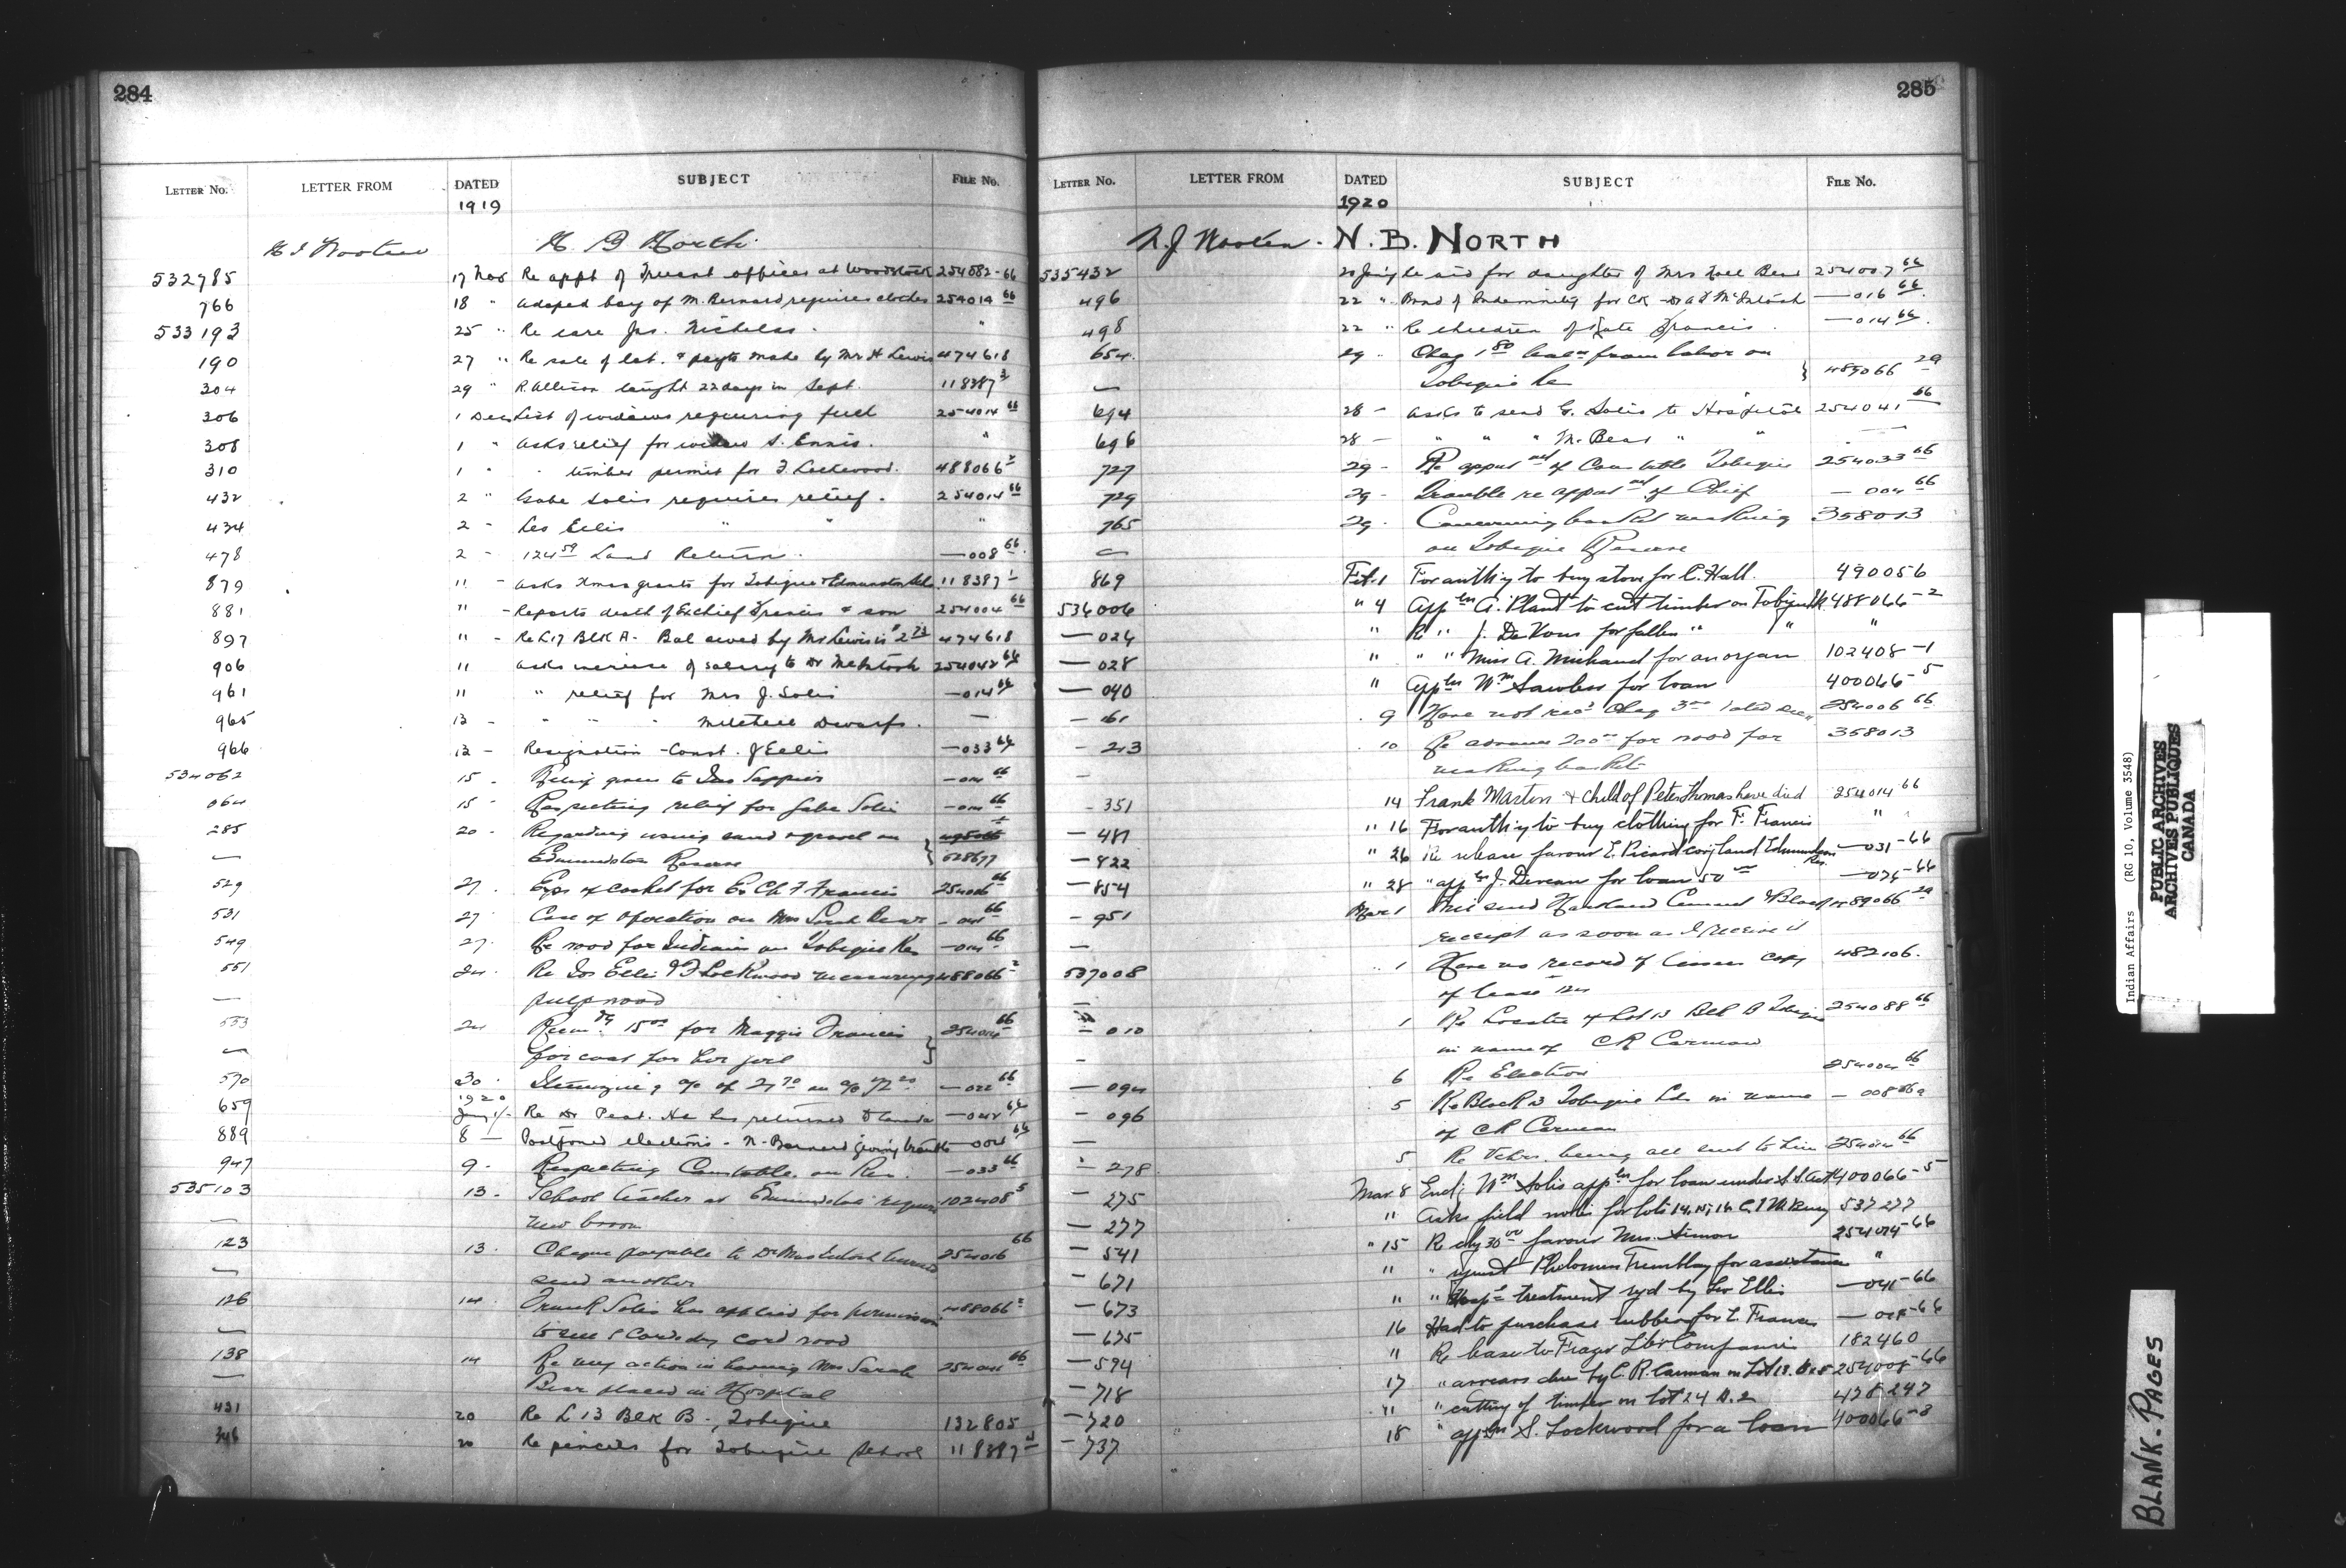 284
LETTER No. LETTER FROM DATED SUBJECT FILE No.
1919
N B North
532785 17 Nov Re appt of Truant officer at Woodstock 254082-66
766 18 " Adopted boy of M. Bernard requires clothes 254014 66
533193 25 " Re care Jas. Nicholas. "
190 27 " Re sale of lot. & payts made by Mr H Lewis 474618
304 29 " R. Allison taught 22 days in Sept. 118387
306 1 Dec List of widows requiring fuel 254014 66
308 1 " Asks relief for widow S. Ennis. "
310 1 " " timber permit for F. Lockwood. 488066 2
432 2 " Gabe Solis requires relief. 254014 66
434 2 - Leo Ellis " " "
478 2 - 124 59 Land Return. —008 66
879 11 - Asks Xmas grants for Tobique & Edmunston Schl. 118387 1
881 " - Reports death of Exchief Francis & son 254004 66
897 " - Re L 17 Blk A - Bal owed by Mr Lewis is 474618
906 11 Asks increase of salary to Dr McIntosh 254042 66
961 11 " relief for Mrs J. Solis —014 66
965 12 - " " " Mitchell Dwarfs. —
966 12 - Resignation - Const. J Ellis —033 66
534062 15 - Relief given to Jas Sappier —014 66
064 15 - Respecting relief for Gabe Solis —014 66
285 20 - Regarding using sand & gravel on
— Edmundston Reserve
529 27. Exps of casket for Ex Ch F Francis 66
531 27. Case of operation on Mrs Sarah Bear 66
549 27. Re wood for Indians on Tobique Res —014 66
551 24. Re Jos Ellis & F Lockwood measuring 488066 2
— pulpwood
553 24 15 00 for Maggie Francis 254014 66
— for coat for her girl
570 30. a/c of 27 70 —022 66
1920
659 Jany Re Dr Peat. He has returned —042 66
889 8 — Postponed elections - N. Bernard giving trouble —004 66
947 9. Respecting Constable on Res. —033 66
535103 13. School teacher at Edmundston requires 102408 5
— new broom
123 13. Cheque payable to Dr MacIntosh burned 254016 66
— send another
126 14. Frank Solis has applied for permission 488066 2
— to sell 5 Cords dry cord wood
138 14 Re my action in having Mrs Sarah 254041 66
— Bear placed in Hospital
431 20 Re L 13 Blk B -, Tobique 132805
346 20 Re pencils for Tobique School 118387
285
LETTER No. LETTER FROM DATED SUBJECT FILE No.
1920
N.J Wooten - N.B. NORTH
535432 Re aid for daughter of Mrs Noel Bear 254007 66
496 22 " Bond of Indemnity for CK - Dr A J McIntosh —016 66
498 22 " Re children of Kate Francis. —014 66
654. 29. Cheq 1 80 from labor on
— Tobique Re 489066 29
694 28 - Asks to send G. Solis to Hospital 254041 66
696 28 — " " " M. Bear " " —
727 29 - Re apptmt of Constable Tobique 254033 66
729 29 - Trouble re apptmt of Chief — 004 66
765 29. Concerning basket making 358013
— on Tobique Reserve
869 Feb. 1 For authy to buy stove for C. Hall. 490056
536006 " 4 Appln A. Plant to cut timber on Tobique 488066-2
—024 " Re " J. DeVous for fallen " " "
—028 " " " Miss A. Michaud for an organ 102408-1
—040 " Appln Wm Sawless for loan 400066-5
—161 . 9 Have not recd Cheq 254006 66
—213 . 10 Re advance 200 00 for wood for 358013
— making baskets
-351 14 Frank Martin & child of Peter Thomas have died 254014 66
—481 " 16 For authy to buy clothing for F. Francis " "
—822 " 26 Re release favour E. Picard covg land Edmundston Res. —031-66
—854 " 28 " appln J. Devean for loan 50 00 —074-66
—951 Mar 1 Will send Hartland Cement & Block 489066 29
— receipt as soon as I receive it
537008 . 1 Have no record of lessees copy 482106.
— of lease 124
—010 1 Re Location of Lot 13 Blk B Tobique 254088 66
- in name of CR Carman
—094 6 Re Election 254004 66
—096 5 Re Block B Tobique in name — 008 66
— of CR Carman
—278 5 Re Vchrs. being all sent to him 254014 66
—275 Mar. 8 Encl; Wm Solis appln for loan under S.S. Act 400066-5
—277 " Asks field notes for lots 14, 15, 16 537277
—541 " 15 Re chq 30 00 favour Mrs. Simon 254014-66
—671 " " request Philomen Tremblay for assistance "
—673 " " Hospl treatment reqd by Leo Ellis —041-66
—675 16 Had to purchase rubbers for L Francis — 014-66
—594 " Re lease to Fraser Lbr Companies 182460
—718 17 " arrears due by C.R. Carman on Lot 13. 254008-66
—720 " " cutting of timber on lot 24 478247
—737 18 " appln S. Lockwood for a loan 400066-3
Indian Affairs (RG 10, Volume 3548)
PUBLIC ARCHIVES
ARCHIVES PUBLIQUES
CANADA
BLANK-PAGES